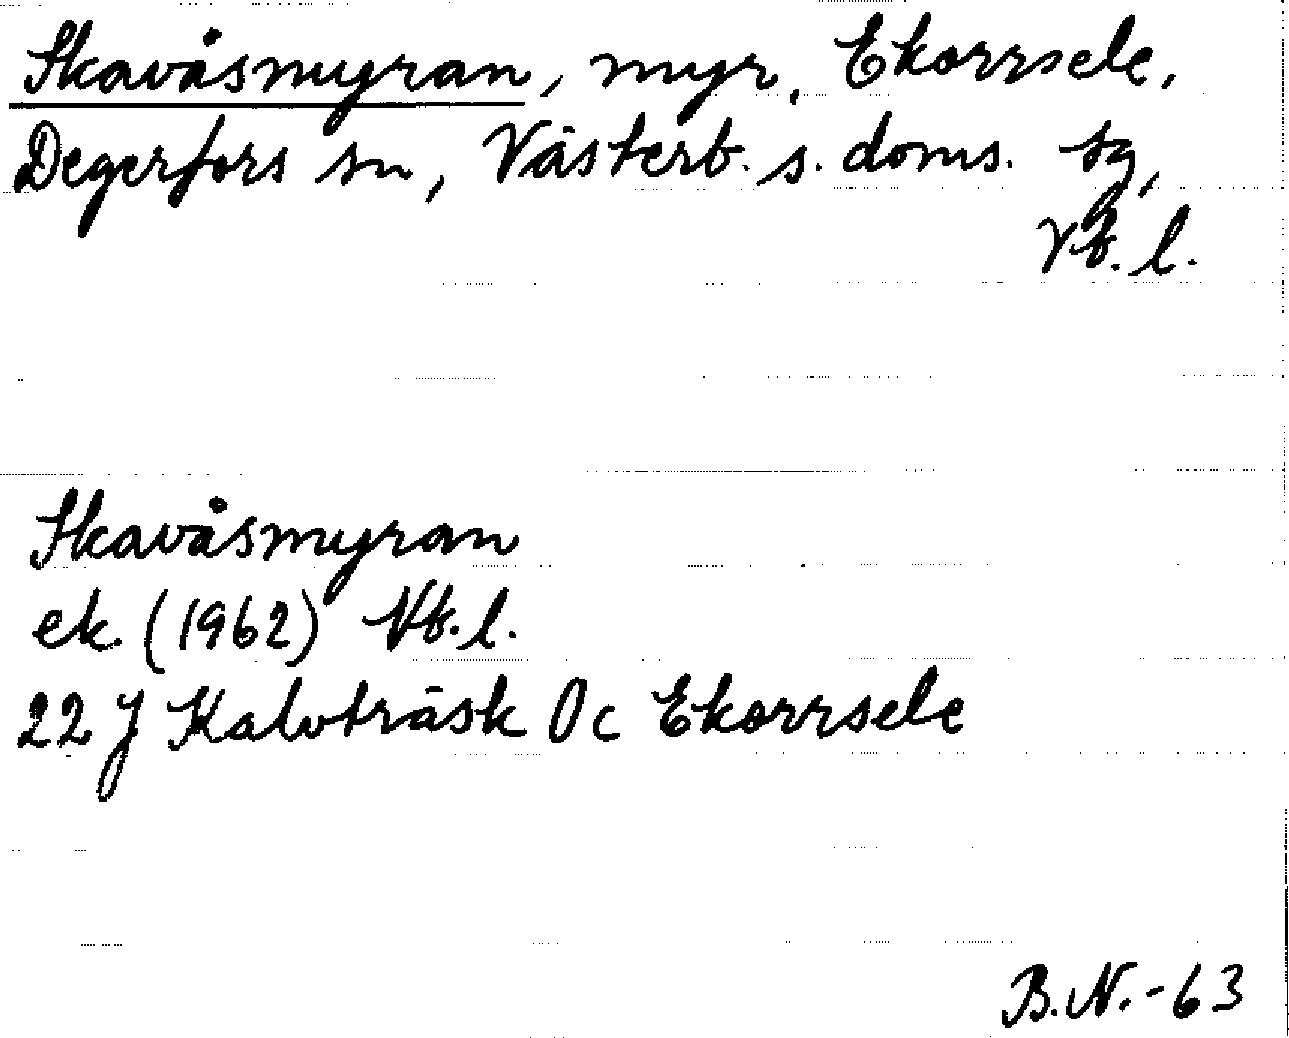 Skavåsmyran, myr, Ekorrsele,
Degerfors sn, Västerb. s. doms. sg,
Vb. l.
Skavåsmyran
ek. (1962) Vb. l.
22 J Kalvträsk 0 c Ekorrsele
B.N.-63